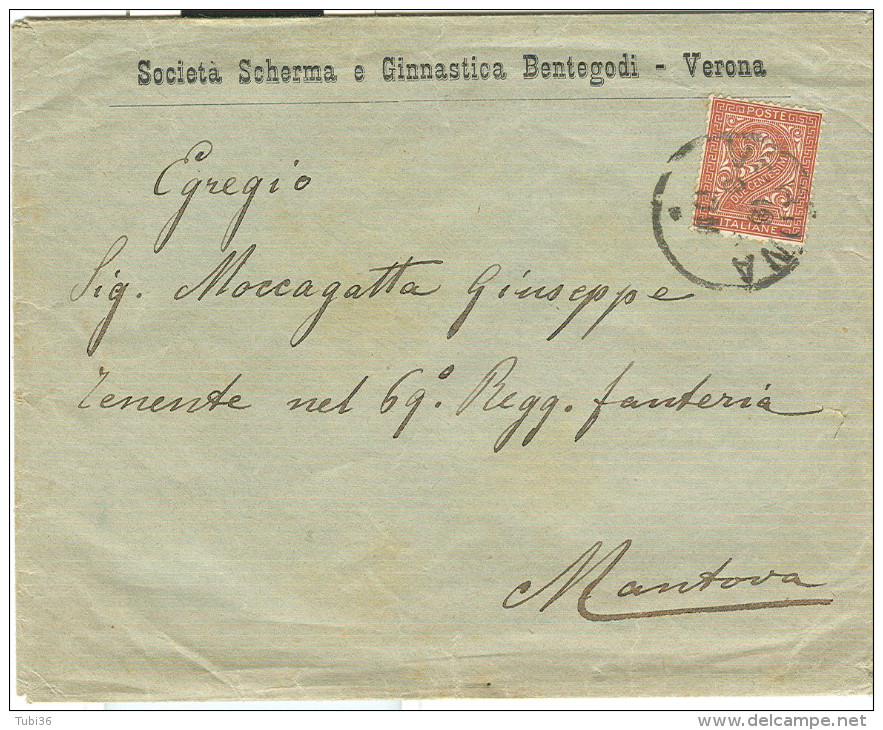 Società Scherma e Ginnastica Bentegodi - Verona
POSTE
DUE CENTESIMI
ITALIANE
Egregio
Sig. Moccagatta Giuseppe
Tenente nel 69º. Regg. fanteria
Mantova
Tubi36
delcampe.net